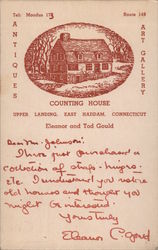 Tel: Moodus 173
Route 149
ANTIQUES
ART GALLERY
COUNTING HOUSE
UPPER LANDING, EAST HADDAM, CONNECTICUT
Eleanor and Tod Gould
Dear Mr. Johnson:
I have just purchased a
collection of
etc. I understand you
old houses and thought you
might be interested.
Yours truly
Eleanor C. Gould